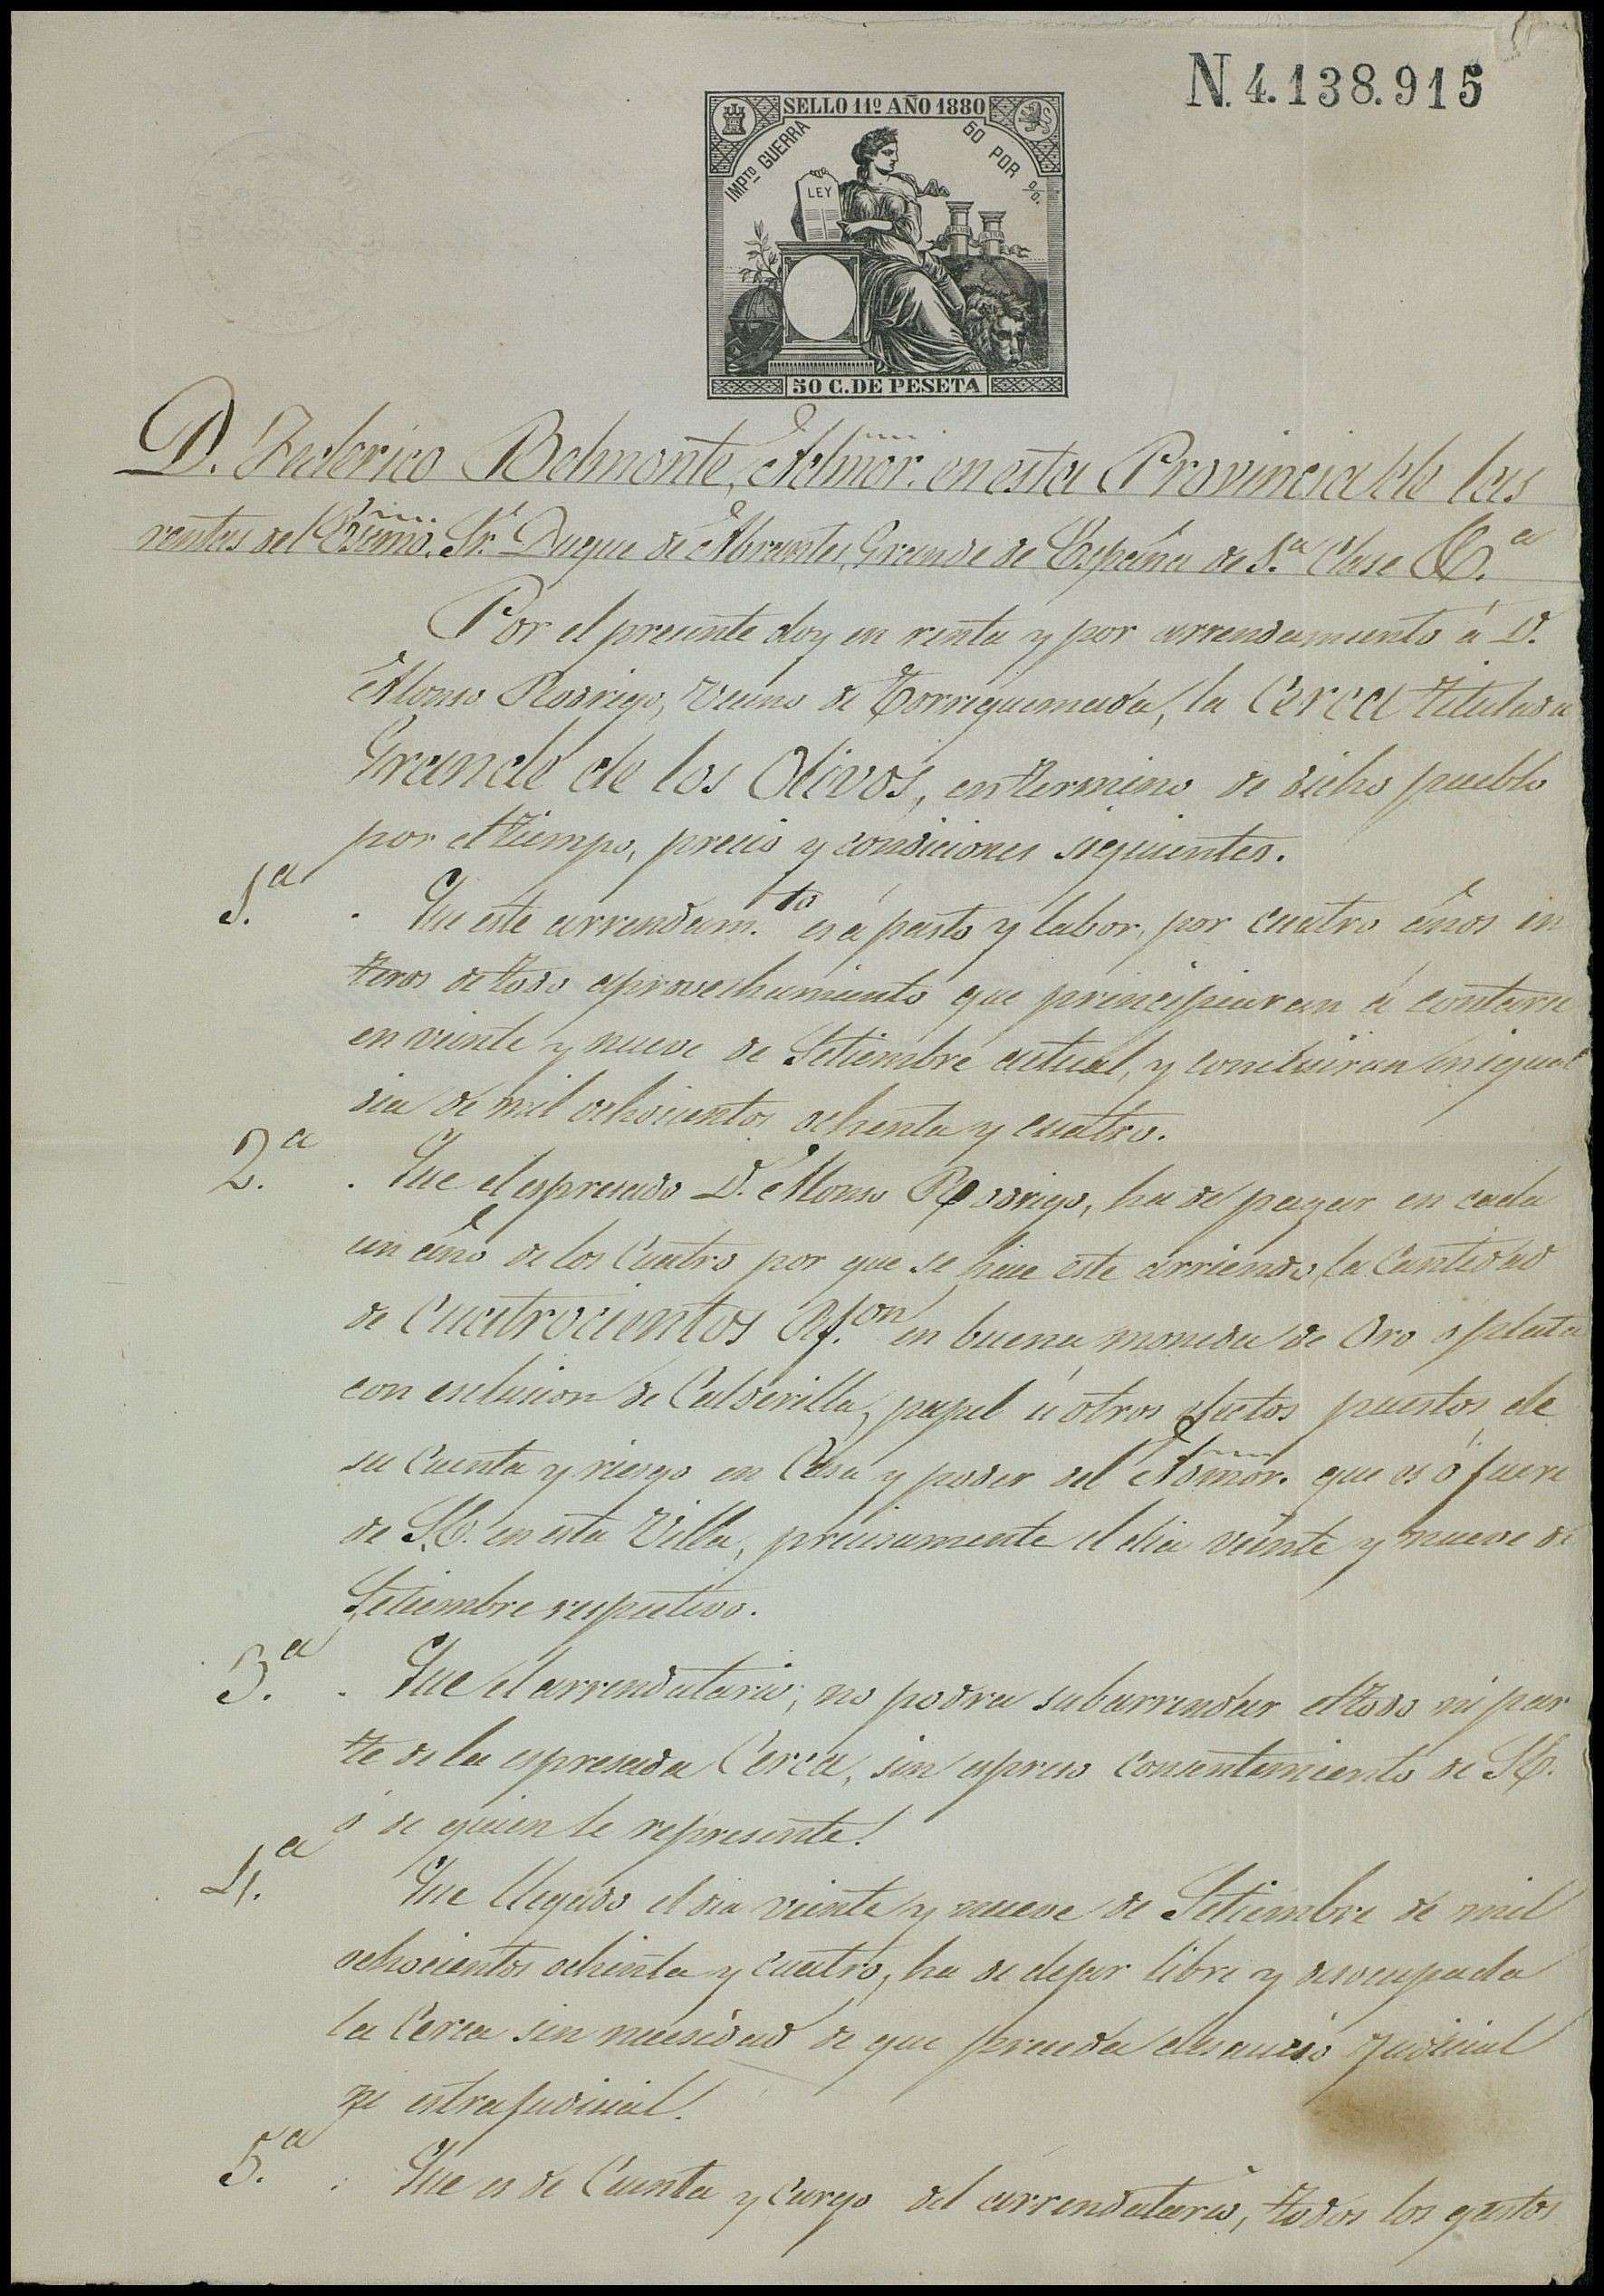 N. 4.138.915
SELLO 11º AÑO 1880
IMPTO GUERRA 50 POR %.
LEY
50 C. DE PESETA
D. Federico Belmonte, Admor. en esta Provincia de las
rentas del Exmo. Sr. Duque de Abrantes, Grande de España de 1.ª Clase &.ª
Por el presente doy en renta y por arrendamiento á D.
Alonso Rodrigo, vecino de Torrequemada, la Cerca titulada
Grande de los Olivos, en termino de dicho pueblo
por el tiempo, precio y condiciones siguientes.
1.ª . Que este arrendam.to es á pasto y labor, por cuatro años en
teros de todo aprovechamiento que principiaran á contarse
en veinte y nueve de Setiembre actual, y concluiran en igual
dia de mil ochocientos ochenta y cuatro.
2.ª . Que el espresado D. Alonso Rodrigo, ha de pagar en cada
un año de los cuatro por que se hace este arriendo, la Cantidad
de Cuatrocientos en buena moneda de Oro o plata
con esclusion de Calderilla, papel ú otros efectos puestos de
su Cuenta y riesgo en Casa y poder del Admor. que es ó fuere
de S.E. en esta Villa, precisamente el dia veinte y nueve de
Setiembre respectivo.
3.ª . Que el arrendatario, no podra subarrendar el todo ni par
te de la espresada Cerca, sin espreso consentimiento de S.E.
ó de quien le represente.
4.ª Que llegado el dia veinte y nueve de Setiembre de mil
ochocientos ochenta y cuatro, ha de dejar libre y desocupada
la Cerca sin necesidad de que preceda desaucio judicial
ni estrajudicial.
5.ª . Que es de Cuenta y cargo del arrendatario, todos los gastos